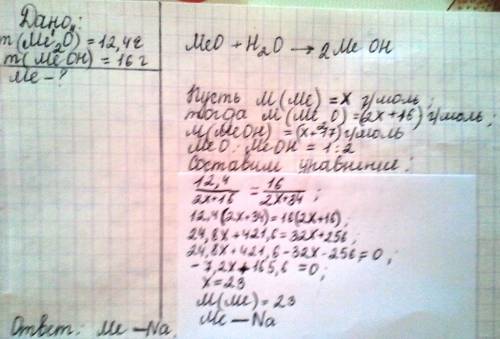 Дано:
m(Me₂O) = 12,4г
m(MeOH) = 16 г
Me - ?
MeO + H₂O → 2MeOH
Пусть M(Me) = x г/моль;
тогда M(Me O) = (2x+16) г/моль;
M(MeOH) = (x+17) г/моль
MeO : MeOH = 1:2
Составим уравнение:
12,4/2x+16 = 16/2x+34;
12,4(2x+34) = 16(2x+16);
24,8x+421,6 = 32x+256;
24,8x+421,6-32x-256 = 0;
-7,2x+165,6 = 0;
x = 23
M(Me) = 23
Me — Na
Ответ: Me — Na.